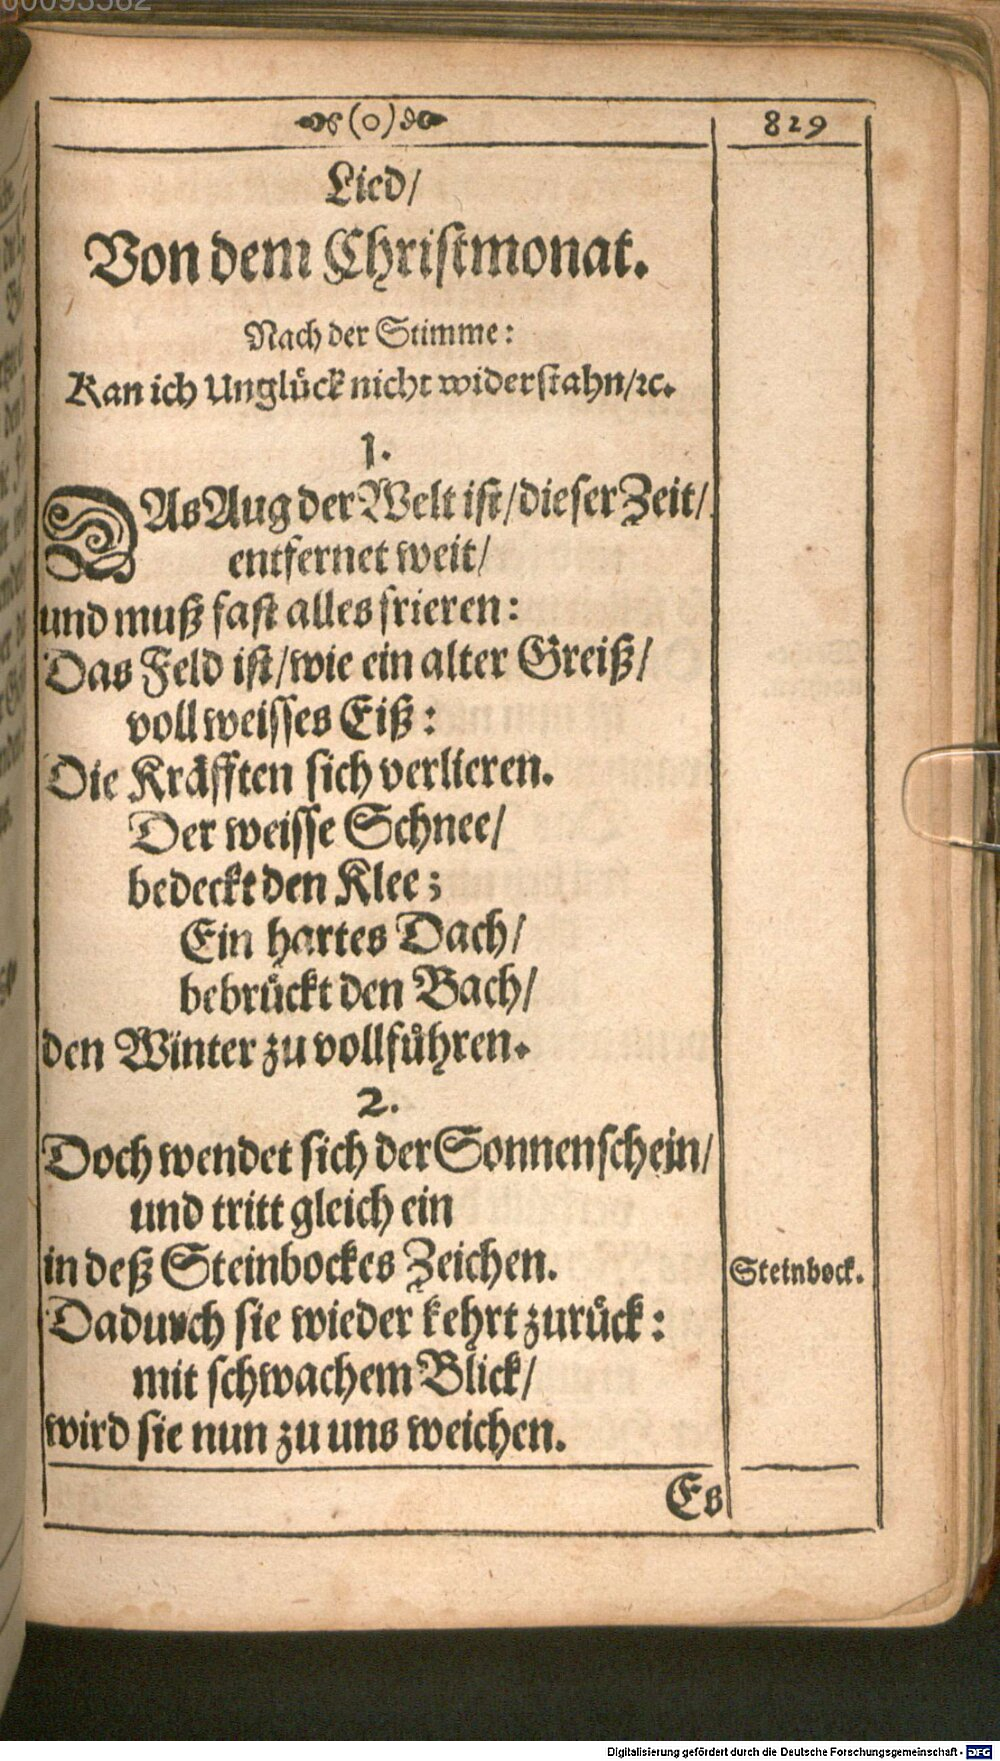 (o)
829
Lied/
Von dem Christmonat.
Nach der Stimme:
Kan ich Unglück nicht widerstahn/ꝛc.
1.
DAs Aug der Welt ist/dieser Zeit/
entfernet weit/
und muß fast alles frieren:
Das Feld ist/wie ein alter Greiß/
voll weisses Eiß:
Die Kräfften sich verlieren.
Der weisse Schnee/
bedeckt den Klee;
Ein hartes Dach/
bebrückt den Bach/
den Winter zu vollführen.
2.
Doch wendet sich der Sonnenschein/
und tritt gleich ein
in deß Steinbockes Zeichen.
Steinbock.
Dadurch sie wieder kehrt zurück:
mit schwachem Blick/
wird sie nun zu uns weichen.
Es
Digitalisierung gefördert durch die Deutsche Forschungsgemeinschaft - DFG